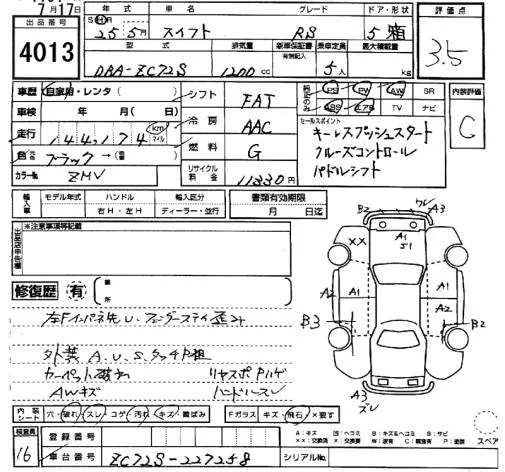 7月17日
出品番号
4013
年式 車名 グレード ドア・形状
25年 5月 スイフト RS 5 箱
型式 排気量 新車保証書 有無記入 乗車定員 最大積載量
DBA-ZC72S 1200cc 5人 kg
評価点
3.5
車歴 自家用・レンタ( )
車検 年 月( )日
走行 144,174 km マイル
色 ブラック→( )
カラーNo. ZMV
シフト FAT
冷房 AAC
燃料 G
リサイクル料金 11830円
PS PW AW SR
ABS エアB TV ナビ
セールスポイント
キーレスプッシュスタート
クルーズコントロール
パドルシフト
内装評価
C
輸入車 モデル年式 ハンドル 右H・左H 輸入区分 ディーラー・並行
書類有効期限
月 日迄
※注意事項等記載
修復歴 有 箇所
左Fインパネ先U.フェンダーステイ歪み
外装 A.U.S.タッチP粗
カーペット破れ リヤスポPハゲ
AWキズ ハンドルスレ
B2 ワレ A3
XX A1 S1
A2 A1 A1 A2
A2
B3 B2
A3 ズレ
内装シート 穴・破れ・スレ・コゲ・汚れ・キズ・黄ばみ Fガラス キズ・飛石・×要す
検査員
16
登録番号
車台番号 ZC72S-227258
シリアルNo.
A：キズ U：凹ヘコミ B：キズ&ヘコミ S：サビ
XX：交換済 X：要交換 W：波有 C：腐食有 P：塗装
スペア